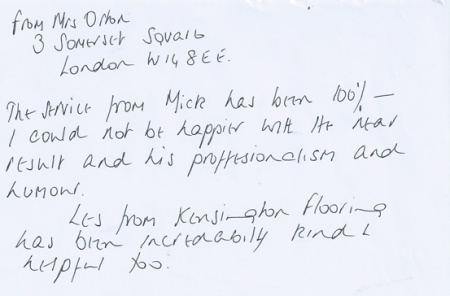 from Mrs Orton
3 Somerset Square
London W14 8EE.
The service from Mick has been 100% –
I could not be happier with the near
result and his proffesionalism and
humour.
Les from Kensington Flooring
has been incredabily kind &
helpful too.